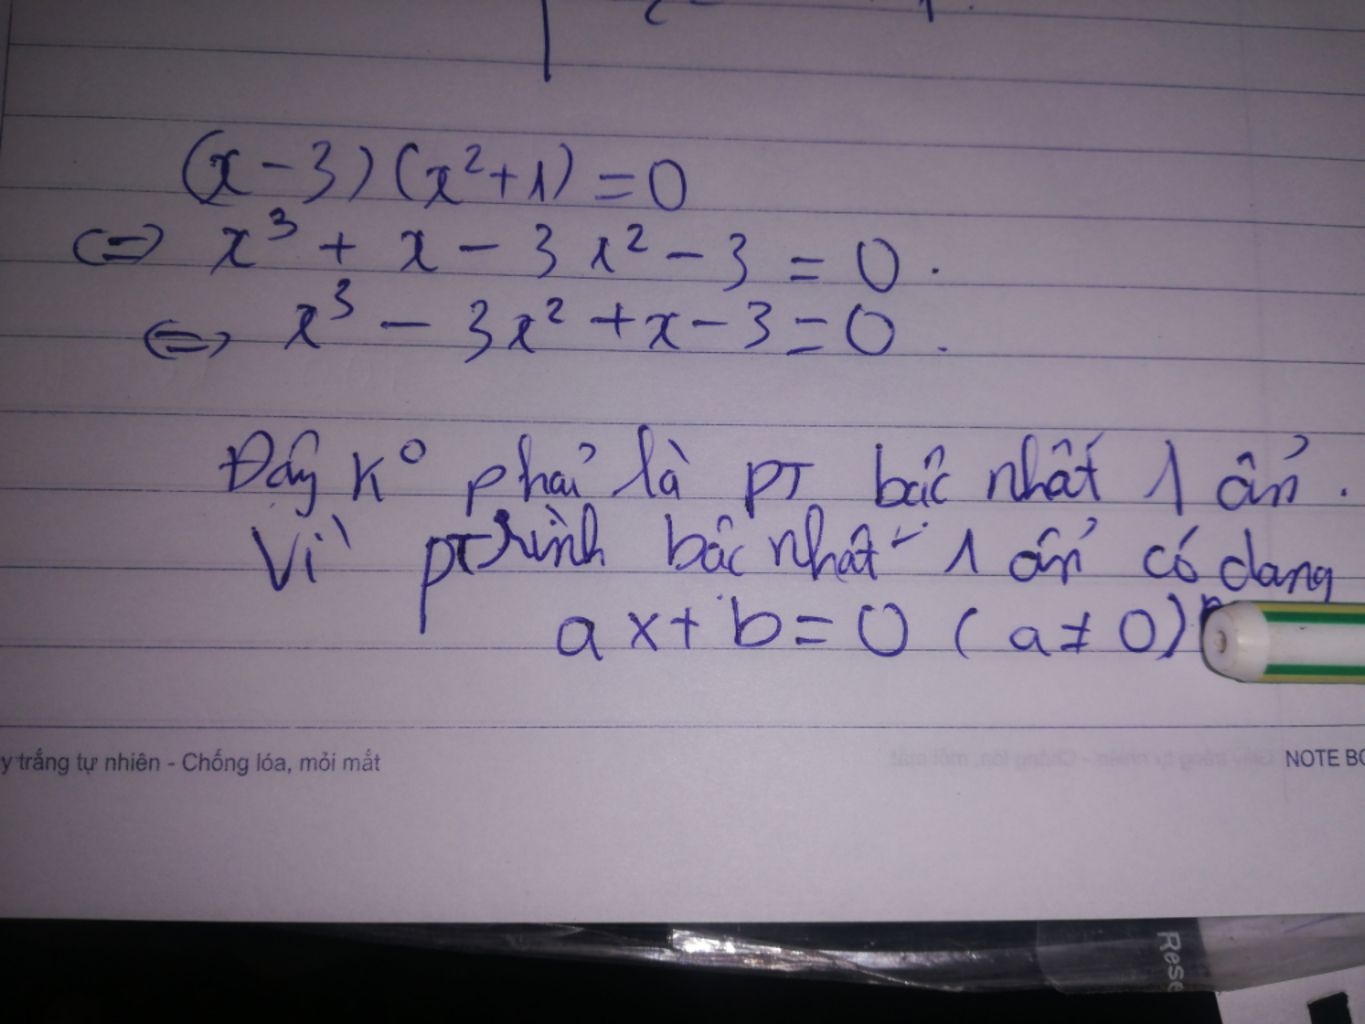 (x-3)(x²+1)=0
<=> x³ + x - 3x² - 3 = 0.
<=> x³ - 3x² + x - 3 = 0.
Đây k° phải là PT bậc nhất 1 ẩn.
Vì ptrình bậc nhất 1 ẩn có dạng
ax + b = 0 (a ≠ 0)
y trắng tự nhiên - Chống lóa, mỏi mắt
NOTE BO
Rese